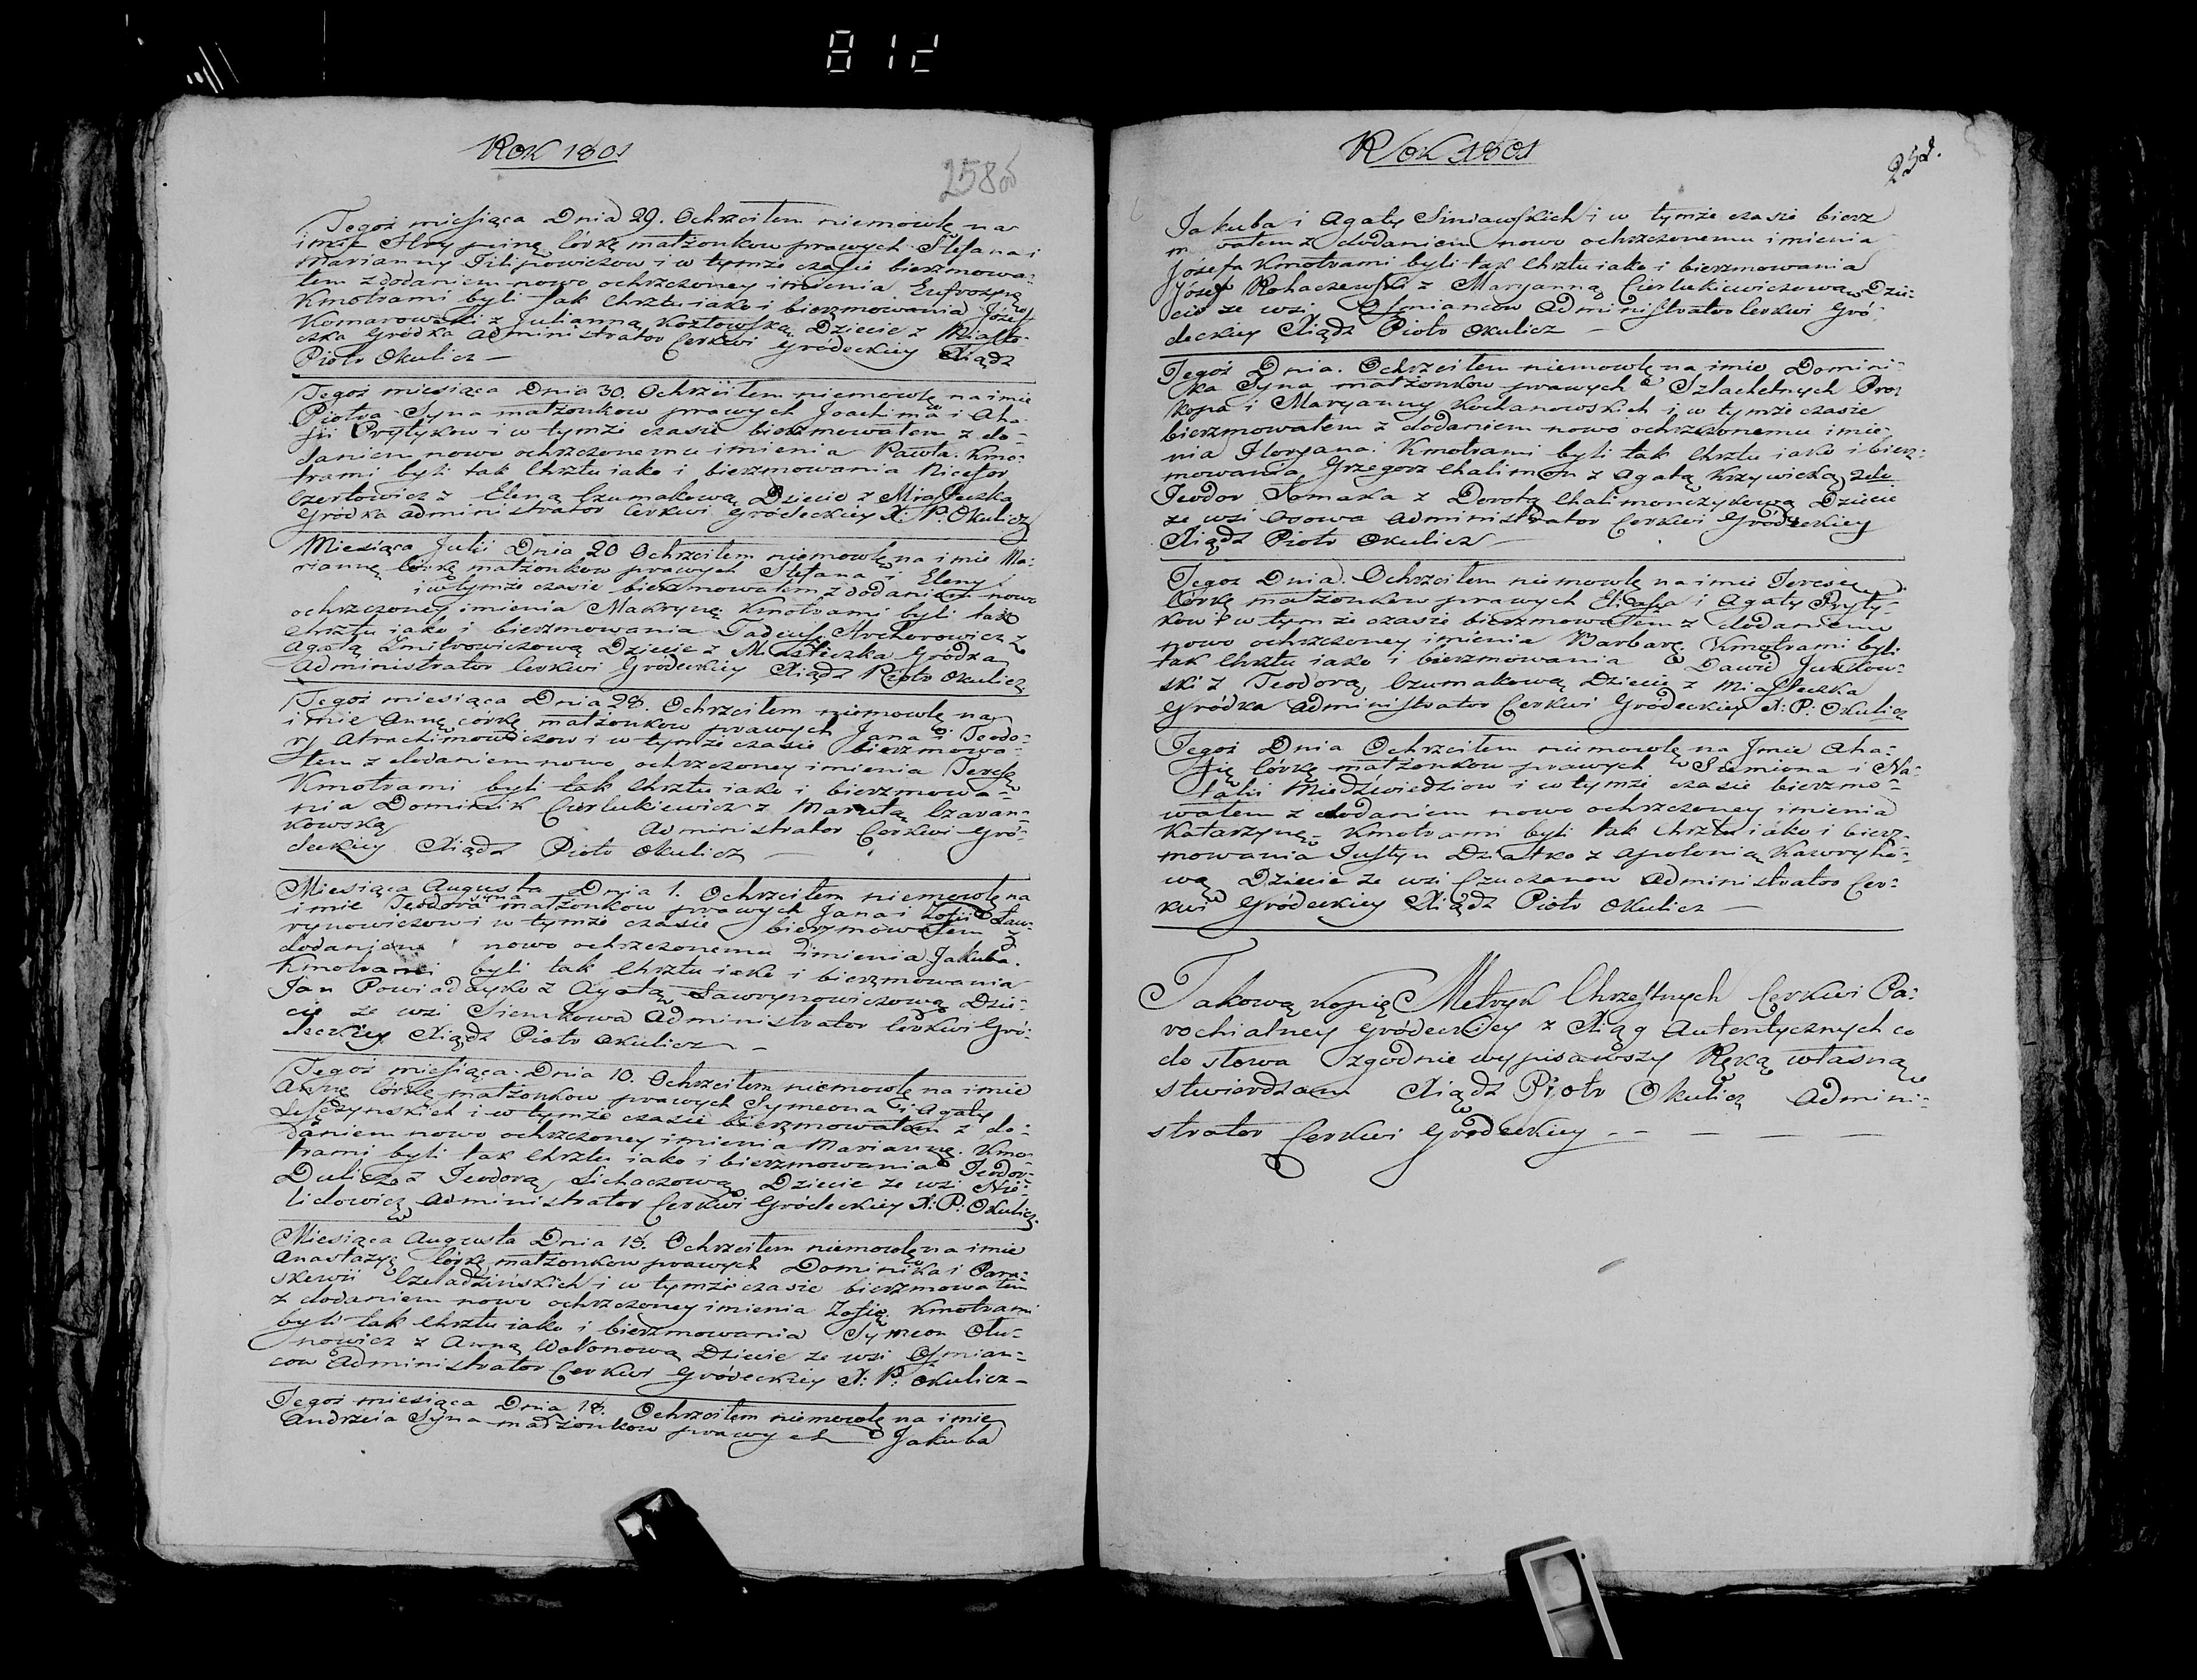 812
Rok 1801
258
Tegoż miesiąca Dnia 29. Ochrzciłem niemowlę na
imie córkę małżonkow prawych Stefana i
Marianny Filipowiczow i w tymże czasie bierzmowa-
łem z dodaniem nowo ochrzczoney imienia Eufrozynę
Kmotrami byli tak Chrztu iako i bierzmowania Józef
Komarowski z Julianną Kozłowską Dziecie z Miaste-
czka Gródka Administrator Cerkwi Gródeckiey Xiądz
Piotr Okulicz —
Tegoż miesiąca Dnia 30. Ochrzciłem niemowlę na imie
Piotra Syna małżonkow prawych Joachima i Aha-
fii Prytykow i w tymże czasie bierzmowałem z do-
daniem nowo ochrzczonemu imienia Pawła. Kmo-
trami byli tak Chrztu iako i bierzmowania Nicefor
Czertowicz z Eleną Czumakową Dziecie z Miasteczka
Gródka Administrator Cerkwi Gródeckiey X: P: Okulicz
Miesiąca Julii Dnia 20 Ochrzciłem niemowlę na imie Ma-
riannę córkę małżonkow prawych Stefana i Eleny
i w tymże czasie bierzmowałem z dodaniem nowo
ochrzczoney imienia Makrynę Kmotrami byli tak
Chrztu iako i bierzmowania Tadeusz z
Agatą Dmitrowiczową Dziecie z Miasteczka Gródka
Administrator Cerkwi Gródeckiey Xiądz Piotr Okulicz
Tegoż miesiąca Dnia 28. Ochrzciłem niemowlę na
imie Annę córkę małżonkow prawych Jana i Teodo-
ry Atrachimowiczow i w tymże czasie bierzmowa-
łem z dodaniem nowo ochrzczoney imienia Teresę
Kmotrami byli tak Chrztu iako i bierzmowa-
nia Dominik Cierlukiewicz z Marutą Czaran-
kowską Administrator Cerkwi Gró-
deckiey Xiądz Piotr Okulicz —
Miesiąca Augusta Dnia 1. Ochrzciłem niemowlę na
imie Teodora syna małżonkow prawych Jana i Zofii Ław-
rynowiczow i w tymże czasie bierzmowałem z
dodaniem nowo ochrzczonemu imienia Jakuba.
Kmotrami byli tak Chrztu iako i bierzmowania
Jan Powiadayko z Agatą Ławrynowiczową Dzie-
cie ze wsi Sienkowa Administrator Cerkwi Gró-
deckiey Xiądz Piotr Okulicz —
Tegoż miesiąca Dnia 10. Ochrzciłem niemowlę na imie
Annę Córkę małżonkow prawych Symeona i Agaty
Leszczynskich i w tymże czasie bierzmowałem z do-
daniem nowo ochrzczoney imienia Mariannę. Kmo-
trami byli tak Chrztu iako i bierzmowania Teodor
Dulicz z Teodorą Lichaczową Dziecie ze wsi Nie-
lidowicz Administrator Cerkwi Gródeckiey X: P: Okulicz
Miesiąca Augusta Dnia 15. Ochrzciłem niemowlę na imie
Anastazyę Córkę małżonkow prawych Dominika i Para-
skewii Czeladzińskich i w tymże czasie bierzmowałem
z dodaniem nowo ochrzczoney imienia Zofię. Kmotrami
byli tak Chrztu iako i bierzmowania Symeon
z Anną Wołonową Dziecie ze wsi Ośmian-
cow Administrator Cerkwi Gródeckiey X: P: Okulicz —
Tegoż miesiąca Dnia 18. Ochrzciłem niemowlę na imie
Andrzeia Syna małżonkow prawych Jakuba
Rok 1801
Jakuba i Agaty Siniawskich i w tymże czasie bierz
m wałem z dodaniem nowo ochrzczonemu imienia
Józefa Kmotrami byli tak Chrztu iako i bierzmowania
Józef Rohaczewski z Maryanną Cierlukiewiczową Dzie-
cie ze wsi Ośmiancow Administrator Cerkwi Gró-
deckiey Xiądz Piotr Okulicz —
Tegoż Dnia. Ochrzciłem niemowlę na imie Domini-
ka Syna małżonkow prawych Szlachetnych Pro-
kopa i Maryanny Kochanowskich i w tymże czasie
bierzmowałem z dodaniem nowo ochrzczonemu imie-
nia Floryana. Kmotrami byli tak Chrztu iako i bierz-
mowania Grzegorz Chalimon z Agatą Krzywicką 2do
Teodor Somaka z Dorotą Chalimonczykową Dziecie
ze wsi Osowa Administrator Cerkwi Gródeckiey
Xiądz Piotr Okulicz —
Tegoż Dnia. Ochrzciłem niemowlę na imie Teresię
Córkę małżonkow prawych i Agaty Pryty-
kow i w tymże czasie bierzmowałem z dodaniem
nowo ochrzczoney imienia Barbarę. Kmotrami byli
tak Chrztu iako i bierzmowania Dawid Junkow-
ski z Teodorą Czumakową Dziecie z Miasteczka
Gródka Administrator Cerkwi Gródeckiey X: P: Okulicz
Tegoż Dnia Ochrzciłem niemowlę na Jmie Aha-
fię Córkę małżonkow prawych Siemiona i Na-
talii Miedźwiedziow i w tymże czasie bierzmo-
wałem z dodaniem nowo ochrzczoney imienia
Katarzynę - Kmotrami byli tak Chrztu iako i bierz-
mowania Justyn Dziatko z Apolonią Kawryho-
wą Dziecie ze wsi Czuczanow Administrator Cer-
kwi Gródeckiey Xiądz Piotr Okulicz —
Takową kopię Metryk Chrzestnych Cerkwi Pa-
rochialney Gródeckiey z Xiąg Autentycznych co
do słowa zgodnie wypisawszy Ręką własną
stwierdzam Xiądz Piotr Okulicz Admini-
strator Cerkwi Gródeckiey — — — —